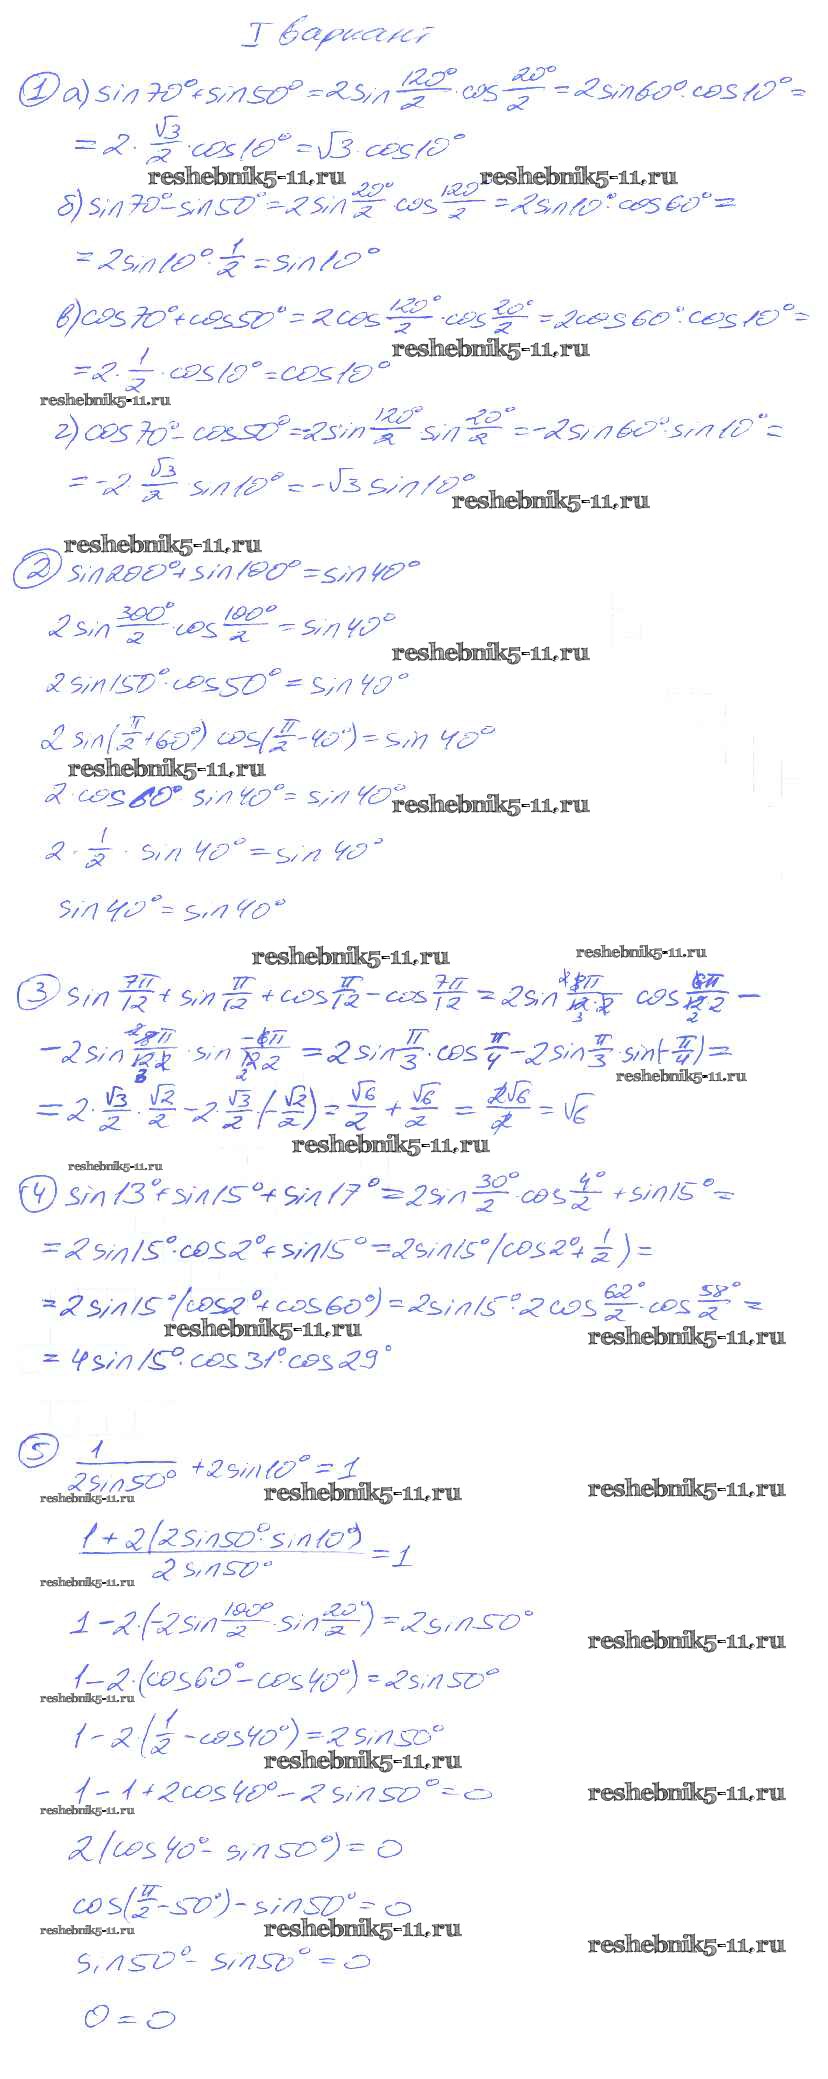 I вариант
① а) sin70° + sin50° = 2sin 120°/2 · cos 20°/2 = 2sin60° · cos10° =
= 2 · √3/2 · cos10° = √3 · cos10°
reshebnik5-11.ru reshebnik5-11.ru
б) sin70° - sin50° = 2sin 20°/2 · cos 120/2 = 2sin10° · cos60° =
= 2sin10° · 1/2 = sin10°
в) cos70° + cos50° = 2cos 120°/2 · cos 20°/2 = 2cos60° · cos10° =
reshebnik5-11.ru
= 2 · 1/2 · cos10° = cos10°
reshebnik5-11.ru
г) cos70° - cos50° = -2sin 120°/2 · sin 20°/2 = -2sin60° · sin10° =
= -2 √3/2 · sin10° = -√3 sin10°
reshebnik5-11.ru
reshebnik5-11.ru
② sin200° + sin100° = sin40°
2sin 300°/2 · cos 100°/2 = sin40°
reshebnik5-11.ru
2sin150° · cos50° = sin40°
2sin(π/2 + 60°) cos(π/2 - 40°) = sin40°
reshebnik5-11.ru
2 · cos60° sin40° = sin40°
reshebnik5-11.ru
2 · 1/2 · sin40° = sin40°
sin40° = sin40°
reshebnik5-11.ru reshebnik5-11.ru
③ sin 7π/12 + sin π/12 + cos π/12 - cos 7π/12 = 2sin 8π/12·2 cos 6π/12·2 -
- 2sin 8π/12·2 · sin -6π/12·2 = 2sin π/3 · cos π/4 - 2sin π/3 · sin(-π/4) =
reshebnik5-11.ru
= 2 · √3/2 · √2/2 - 2 · √3/2 · (-√2/2) = √6/2 + √6/2 = 2√6/2 = √6
reshebnik5-11.ru
reshebnik5-11.ru
④ sin13° + sin15° + sin17° = 2sin 30°/2 · cos 4°/2 + sin15° =
= 2sin15° · cos2° + sin15° = 2sin15° (cos2° + 1/2) =
= 2sin15° (cos2° + cos60°) = 2sin15° · 2cos 62°/2 · cos 58°/2 =
reshebnik5-11.ru reshebnik5-11.ru
= 4sin15° · cos31° · cos29°
⑤ 1/2sin50° + 2sin10° = 1
reshebnik5-11.ru reshebnik5-11.ru reshebnik5-11.ru
1 + 2(2sin50° · sin10°)/2sin50° = 1
reshebnik5-11.ru
1 - 2 · (-2sin 100°/2 · sin 20°/2) = 2sin50°
reshebnik5-11.ru
1 - 2 · (cos60° - cos40°) = 2sin50°
reshebnik5-11.ru
1 - 2(1/2 - cos40°) = 2sin50°
reshebnik5-11.ru
1 - 1 + 2cos40° - 2sin50° = 0
reshebnik5-11.ru reshebnik5-11.ru
2(cos40° - sin50°) = 0
cos(π/2 - 50°) - sin50° = 0
reshebnik5-11.ru reshebnik5-11.ru reshebnik5-11.ru
sin50° - sin50° = 0
0 = 0